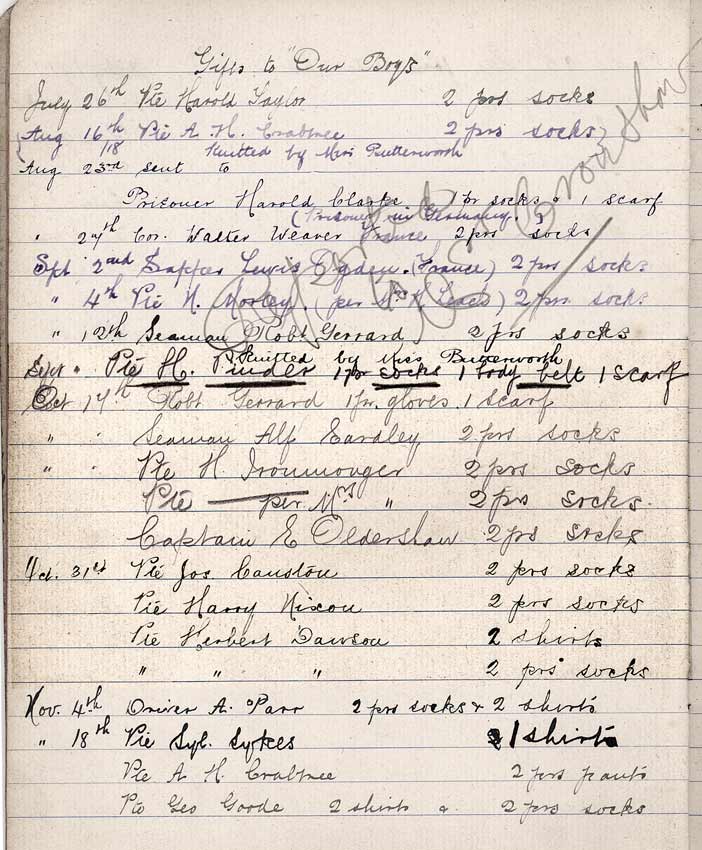 Gifts to "Our Boys"
July 26th Pte Harold Taylor 2 prs socks
Aug 16th Pte A. H. Crabtree 2 prs socks
/18 Knitted by Miss Butterworth
Aug 23rd sent to
Prisoner Harold Clarke 1 pr socks & 1 scarf
(Prisoner in Germany.)
" 27th Cor. Walter Weaver France 2 prs socks
Sept 2nd Sapper Lewis Ogden. (France) 2 prs socks
" 4th Pte N. Morley. (per Mrs H Leads) 2 prs socks
" 12th Seaman Robt Gerrard 2 prs socks
Knitted by Miss Butterworth
Sept " Pte H. Pinder 1 pr socks 1 body belt 1 scarf
Oct 17th Robt Gerrard 1 pr. gloves. 1 scarf
" " Seaman Alf Eardley 2 prs socks
" " Pte H Ironmonger 2 prs socks
Pte per Mrs " 2 prs socks.
Captain E Oldershaw 2 prs socks
Oct. 31st Pte Jos. Causton 2 prs socks
Pte Harry Nixon 2 prs socks
Pte Herbert Dawson 2 shirts
" " " 2 prs socks
Nov. 4th Driver A. Parr 2 prs socks & 2 shirts
" 18th Pte Syl. Sykes 1 shirts
Pte A H. Crabtree 2 prs pants
Pte Geo Goode 2 shirts & 2 prs socks